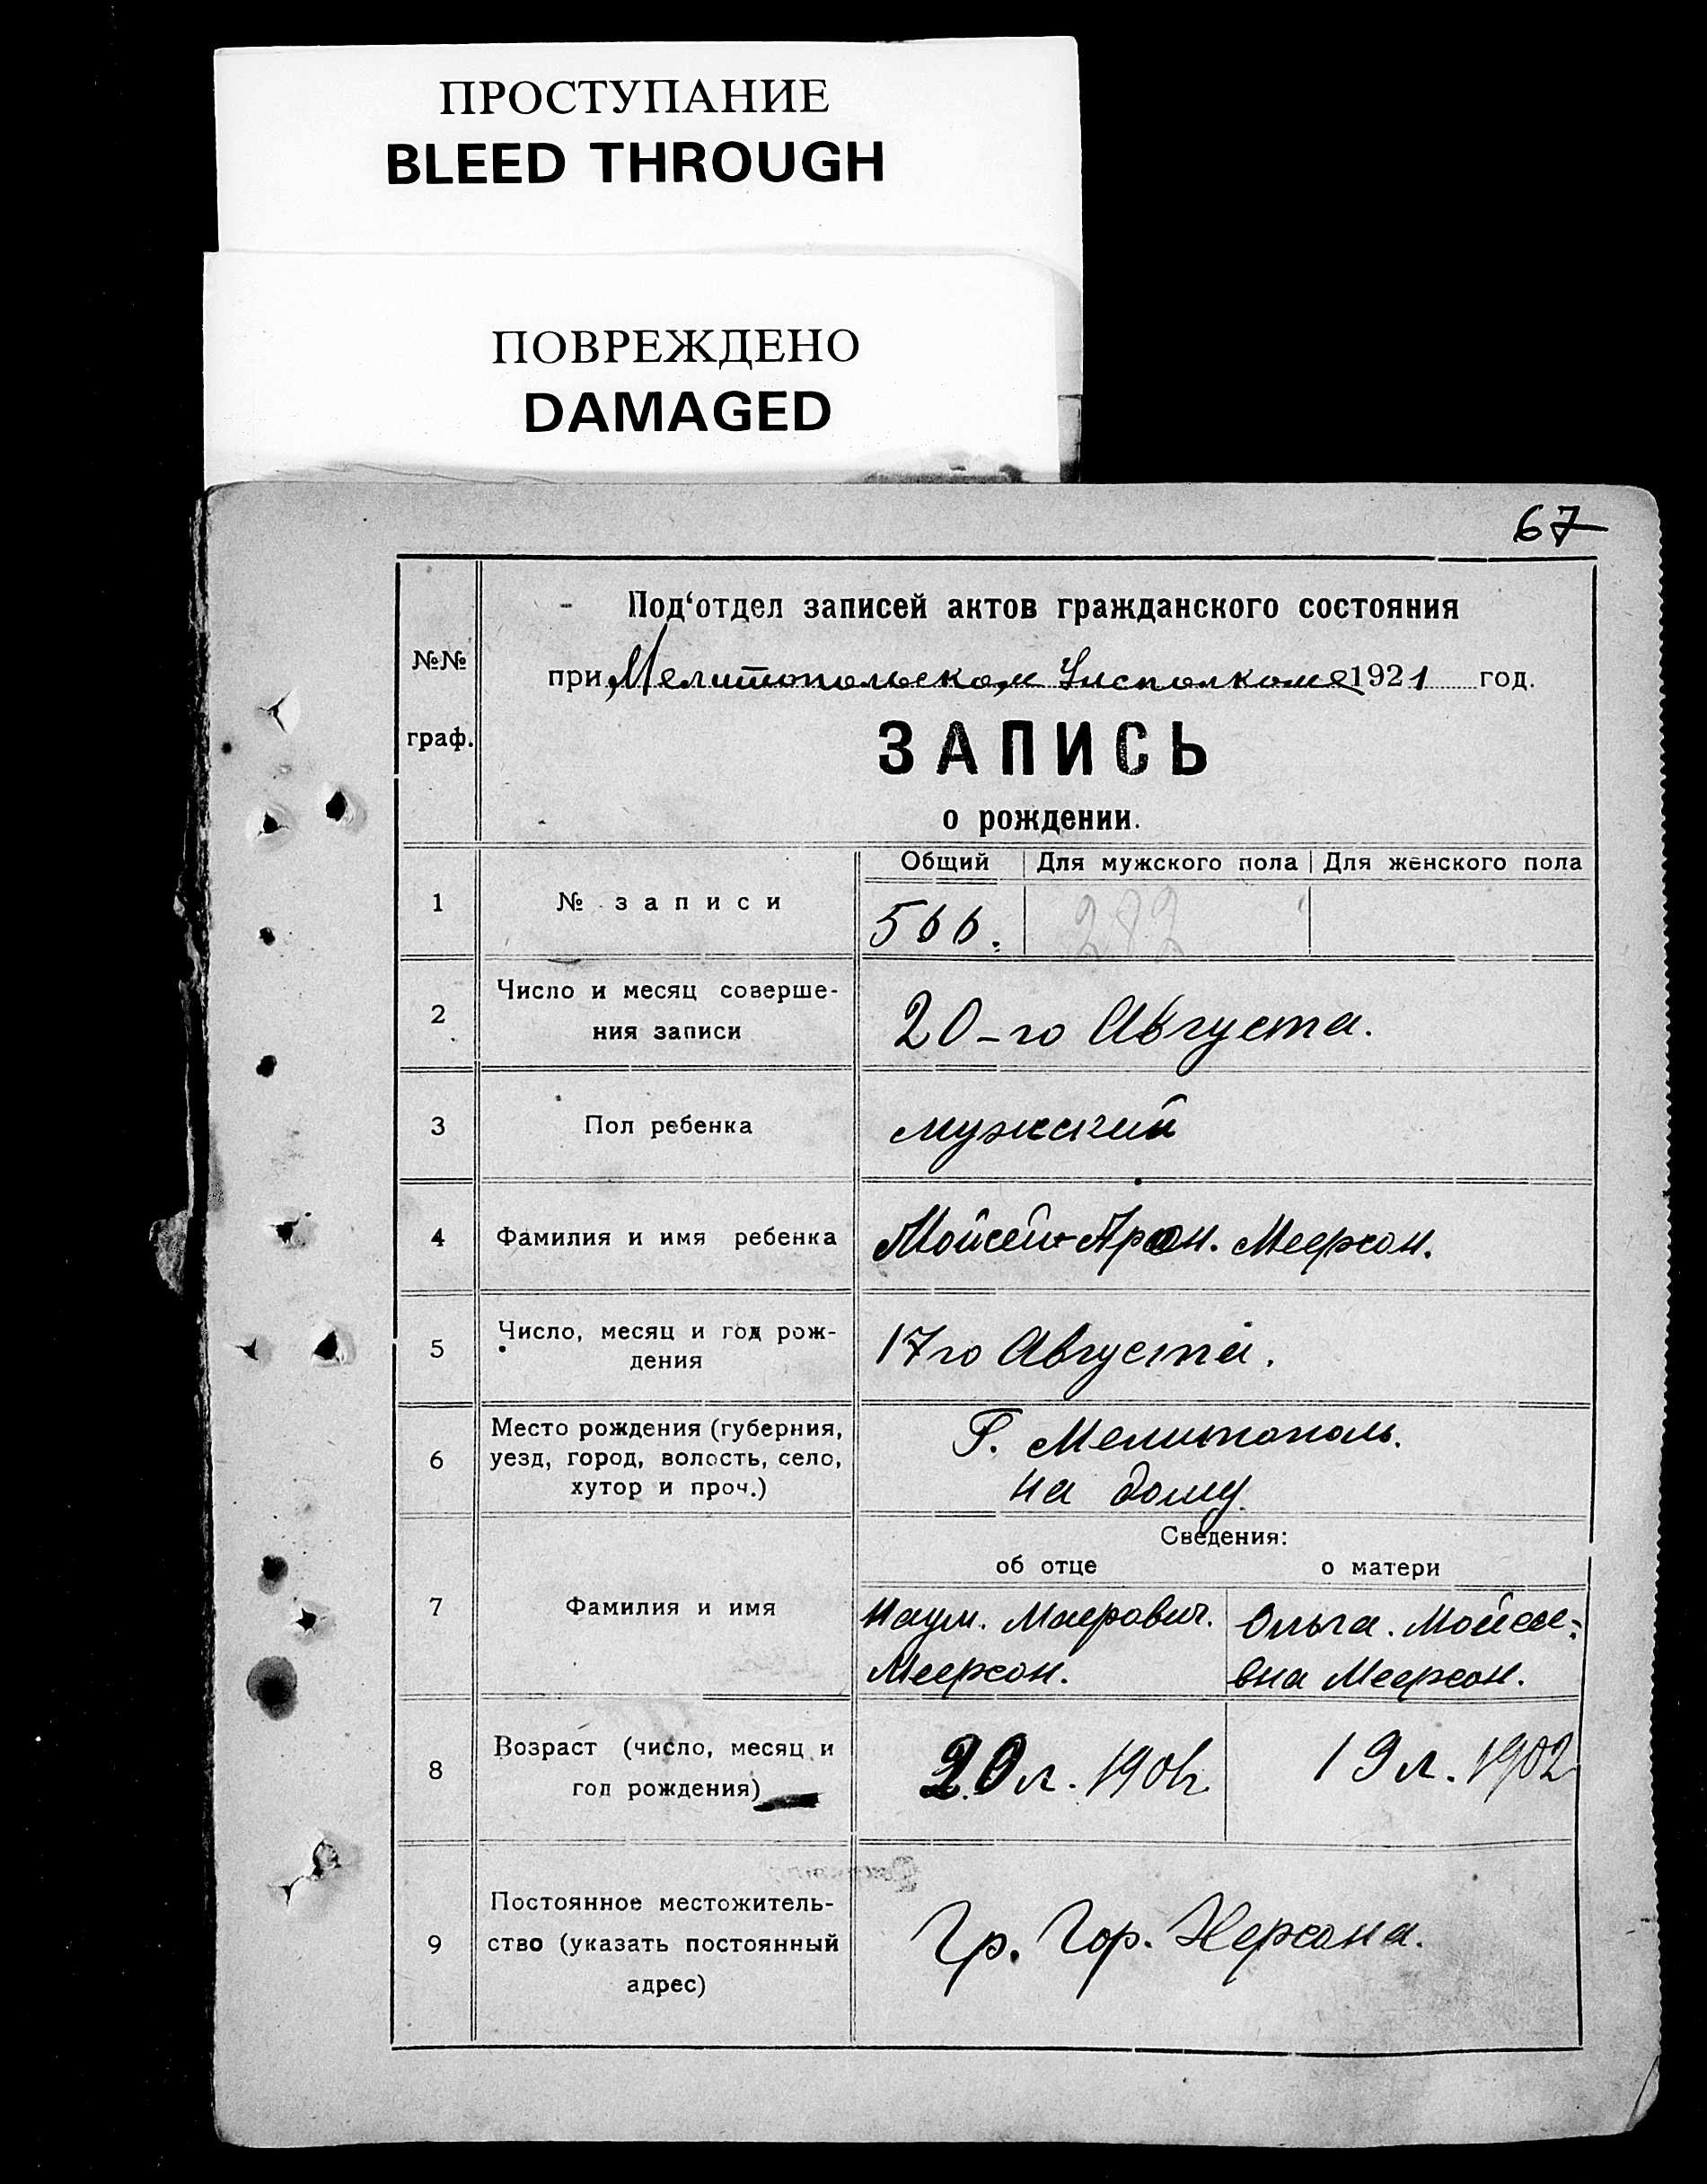 ПРОСТУПАНИЕ
BLEED THROUGH
ПОВРЕЖДЕНО
DAMAGED
67
Под‘отдел записей актов гражданского состояния
при Мелитопольском Исполкоме 1921 год.
№№
граф.
ЗАПИСЬ
о рождении.
Общий Для мужского пола Для женского пола
1 № записи 566. 282
2 Число и месяц соверше-
ния записи 20-го Августа.
3 Пол ребенка мужский
4 Фамилия и имя ребенка Мойсей-Арон. Меерсон.
5 Число, месяц и год рож-
дения 17го Августа.
6 Место рождения (губерния,
уезд, город, волость, село,
хутор и проч.)
Г. Мелитополь.
на дому.
Сведения:
об отце о матери
7 Фамилия и имя
Наум. Маерович. Меерсон.
Ольга. Мойсее-
вна Меерсон.
8 Возраст (число, месяц и
год рождения)
20 л. 1901г 19 л. 1902
9 Постоянное местожитель-
ство (указать постоянный
адрес)
Гр. Гор. Херсона.